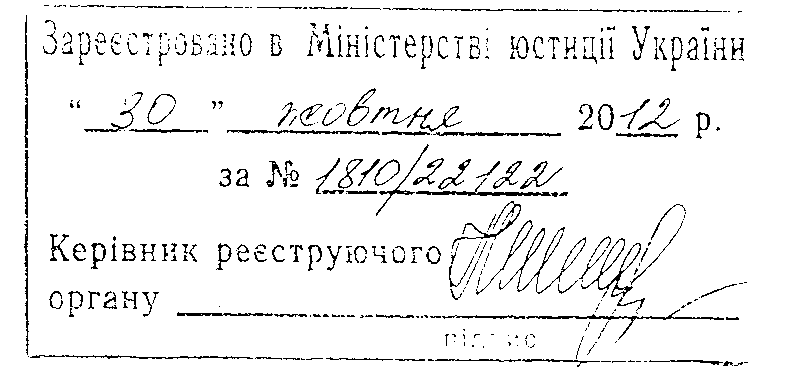 Зареєстровано в Міністерстві юстиції України
“ 30 ” жовтня 2012 р.
за № 1810/22122
Керівник реєструючого
органу
підпис